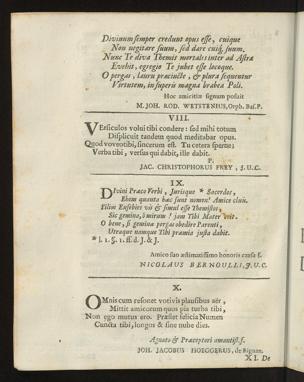 Divinum semper credunt opus esse, cuique
Non negitare suum, sed dare cuiq; suum.
Nunc Te diva Themis mortales inter ad Astra
Evehit, egregio Te jubet esse locoque.
O pergas, lauru præcincte, & plura sequentur
Virtutem, in superis magna brabea Poli.
Hoc amicitiæ signum posuit
M. JOH. ROD. WETSTENIUS, Orph. Bas. P.
VIII.
VErsiculos volui tibi condere: sed mihi totum
Displicuit tandem quod meditabar opus.
Quod voveo tibi, sincerum est. Tu cetera sperne;
Verba tibi, versus qui dabit, ille dabit.
P.
JAC. CHRISTOPHORUS FREY, J. U. C.
IX.
DIvini Præco Verbi, Jurisque * Sacerdos,
Ehem quanta hæc sunt nomen! Amice cluis.
Filium Eusebies vis & simul esse Themistos,
Sic gemina, ô mirum! jam Tibi Mater erit.
O bene, si geminæ pergas obedire Parenti,
Utraque namque Tibi præmia justa dabit.
* l. 1. §. 1. ff. d. J. & J.
Amico suo æstimatissimo honoris causa f.
NICOLAUS BERNOULLI, J. U. C.
X.
OMnis cum resonet votivis plausibus aër,
Mittit amicorum quos pia turba tibi,
Non ego mutus ero. Præstet felicia Numen
Cuncta tibi, longos & sine nube dies.
Agnato & Præceptori amantiss. f.
JOH. JACOBUS HOEGGERUS, de Bignan.
XI. De